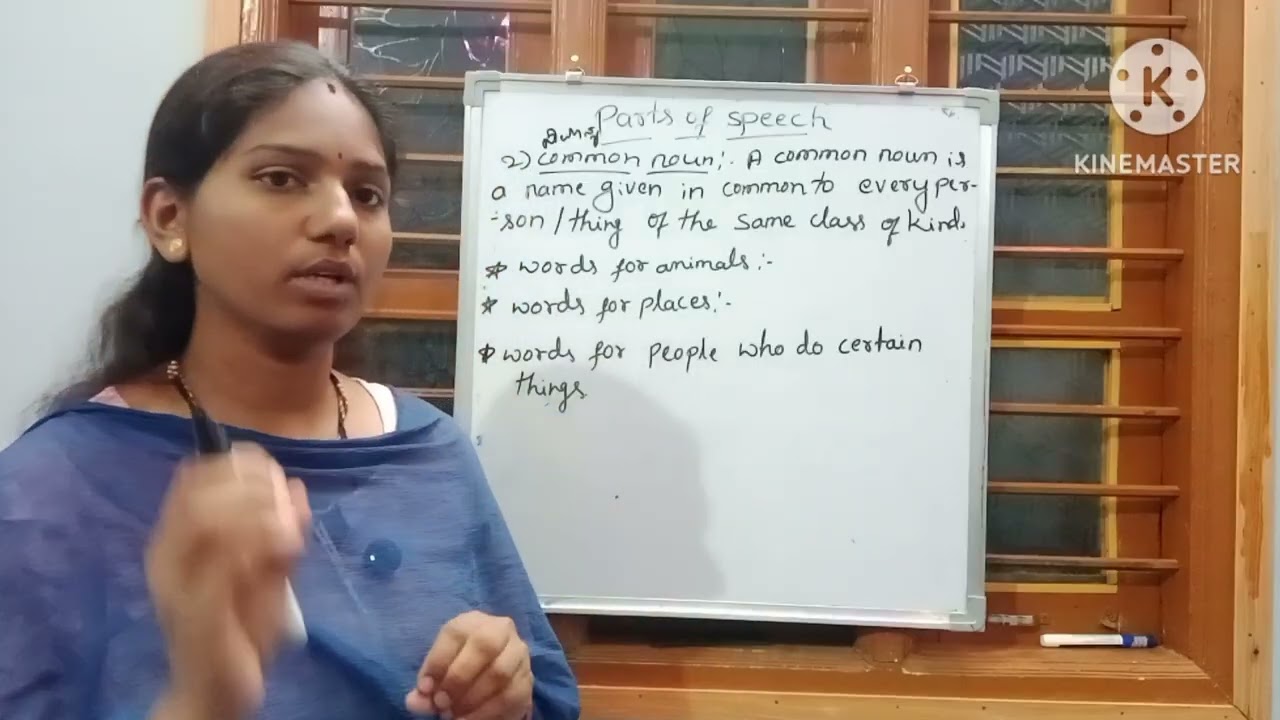 Parts of speech
2) common noun:- A common noun is
a name given in common to every per-
-son/thing of the same class of kind.
* words for animals:-
* words for places:-
* words for people who do certain
things
K
KINEMASTER